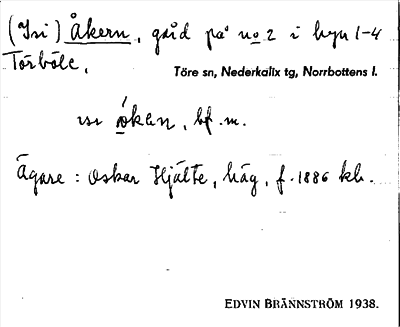 (Isi) Åkern, gård på no 2 i byn 1-4
Törböle,
Töre sn, Nederkalix tg, Norrbottens l.
isi åken, bf. m.
Ägare: Oskar Hjälte, häg, f. 1886 kb.
EDVIN BRÄNNSTRÖM 1938.